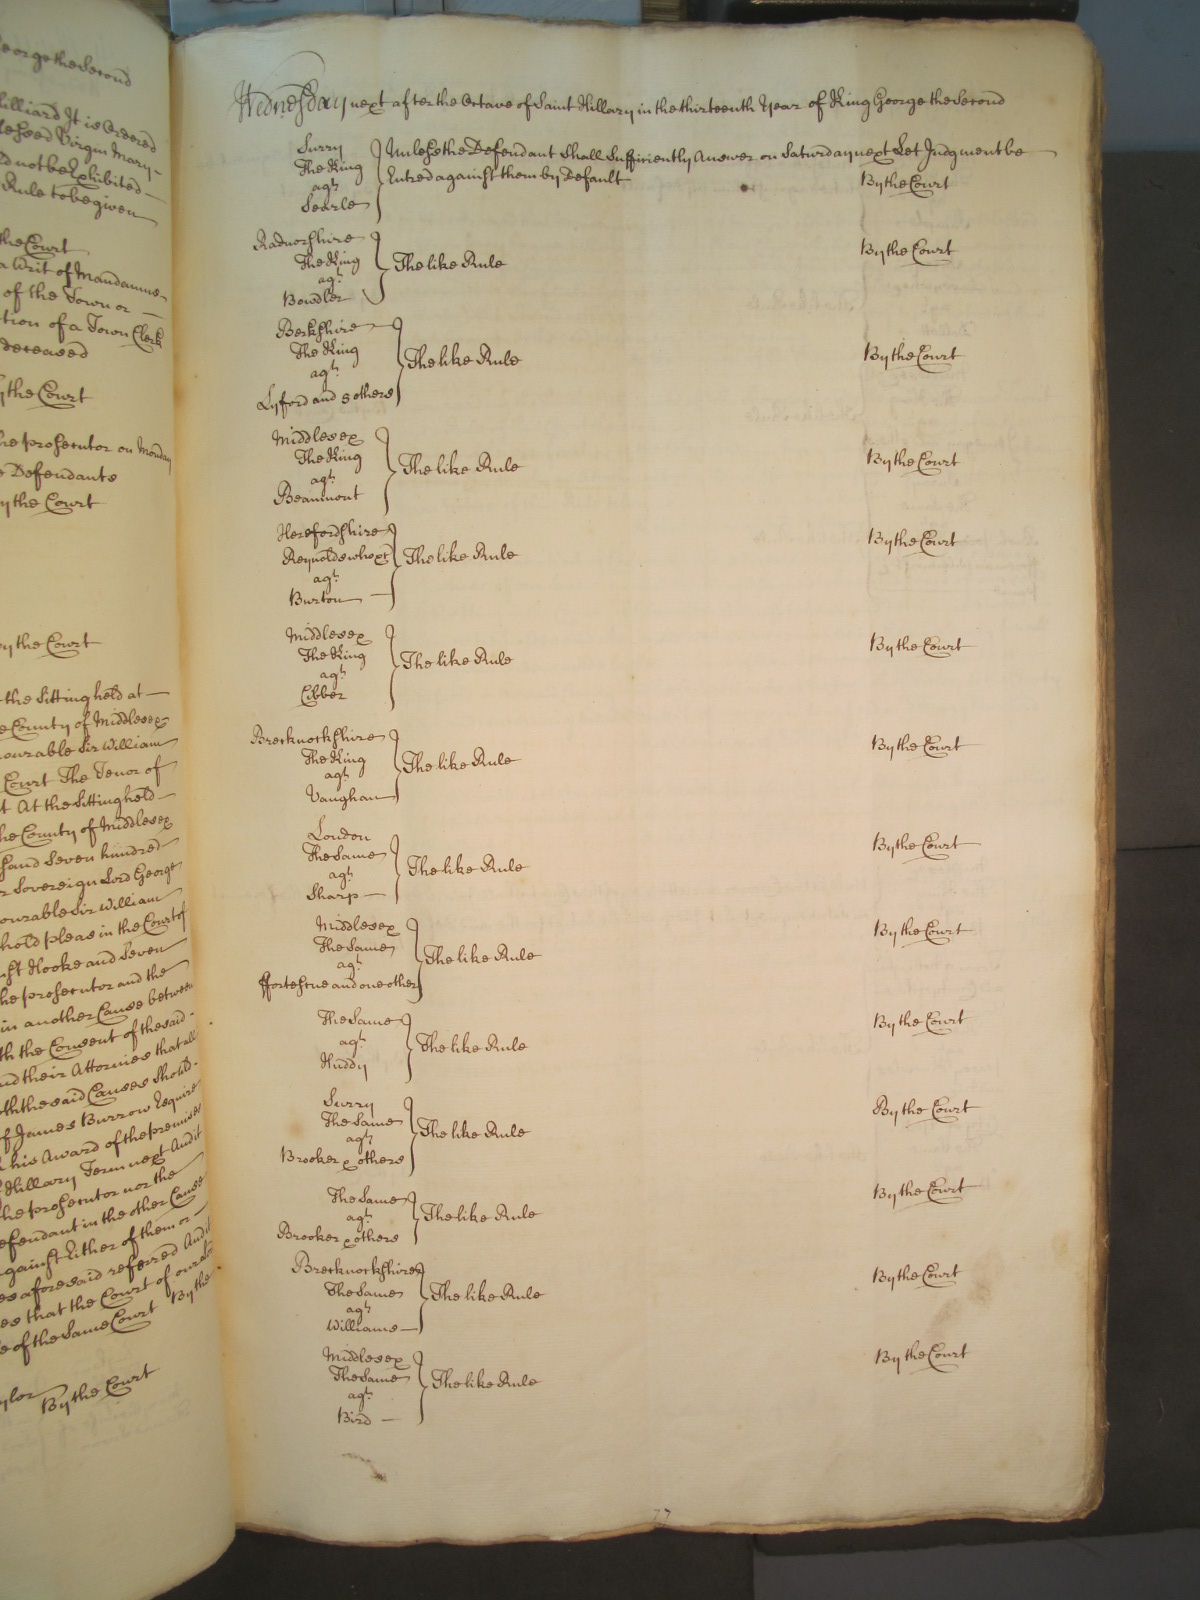 George the Second
Hilliard It is Ordered
Blessed Virgin Mary
not be Exhibited
Rule to be given
the Court
a Writ of Mandamus
of the Town or
tion of a Town Clerk
deceased
By the Court
he prosecutor on Monday
Defendants
By the Court
By the Court
the Sitting held at
County of Middlesex
ourable Sir William
Court The Tenor of
t At the Sitting held
he County of Middlesex
sand Seven hundred
r Sovereign Lord George
ourable Sir William
hold pleas in the Court of
nst Hooke and Seven
he prosecutor and the
in another Cause between
th the Consent of the said
nd their Attornies that all
oth the said Causes Should
of James Burrow Esquire
his Award of the premises
Hillary Term next And it
he prosecutor nor the
efendant in the other Cause
against Either of them or
es aforesaid referred And it
es that the Court of our
e of the Same Court By the
ylor By the Court
Wednesday next after the Octave of Saint Hillary in the thirteenth Year of King George the Second
Surry
The King
agt.
Searle
Unless the Defendant Shall Sufficiently Answer on Saturday next Let Judgment be
Entred against them by Default By the Court
Radnorshire
The King
agt.
Bowdler
The like Rule By the Court
Berkshire
The King
agt.
Lyford and 8 others
The like Rule By the Court
Middlesex
The King
agt.
Beaumont
The like Rule By the Court
Herefordshire
Reynolds who &c
agt.
Burton
The like Rule By the Court
Middlesex
The King
agt.
Cibber
The like Rule By the Court
Brecknockshire
The King
agt.
Vaughan
The like Rule By the Court
London
The Same
agt.
Sharp
The like Rule By the Court
Middlesex
The Same
agt.
ffortescue and one other
The like Rule By the Court
The Same
agt.
Huddy
The like Rule By the Court
Surry
The Same
agt.
Brooker & others
The like Rule By the Court
The Same
agt.
Brooker & others
The like Rule By the Court
Brecknockshire
The Same
agt.
Williams
The like Rule By the Court
Middlesex
The Same
agt.
Bird
The like Rule By the Court
77